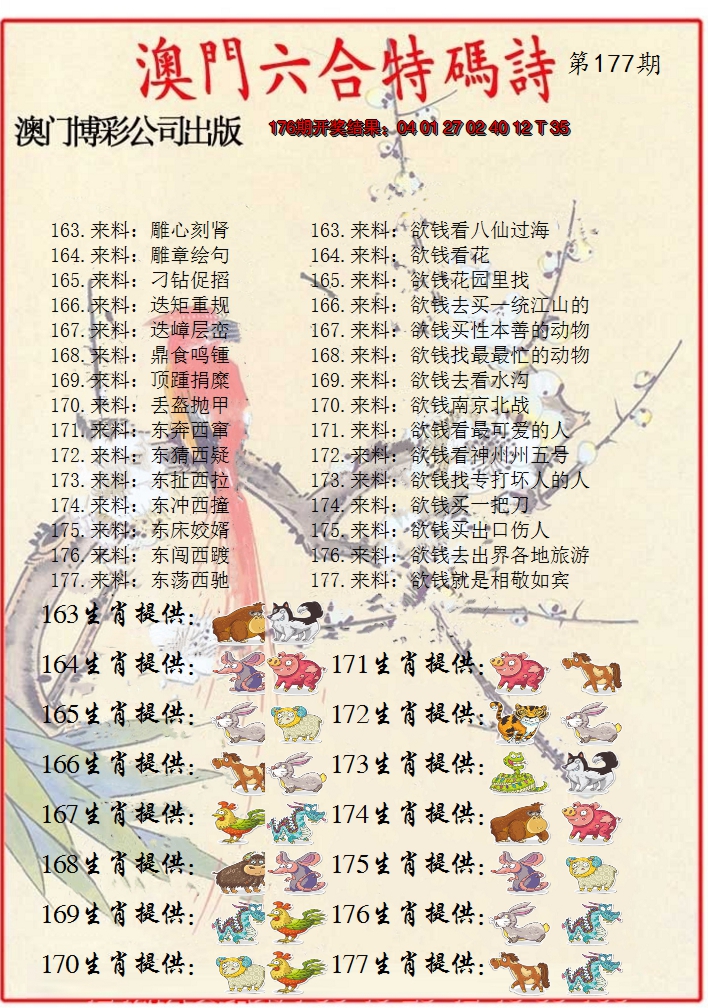 澳門六合特碼詩 第177期
澳门博彩公司出版 176期开奖结果：04 01 27 02 40 12 T 35
163.来料：雕心刻肾 163.来料：欲钱看八仙过海
164.来料：雕章绘句 164.来料：欲钱看花
165.来料：刁钻促搯 165.来料：欲钱花园里找
166.来料：迭矩重规 166.来料：欲钱去买一统江山的
167.来料：迭嶂层峦 167.来料：欲钱买性本善的动物
168.来料：鼎食鸣锺 168.来料：欲钱找最最忙的动物
169.来料：顶踵捐糜 169.来料：欲钱去看水沟
170.来料：丢盔抛甲 170.来料：欲钱南京北战
171.来料：东奔西窜 171.来料：欲钱看最可爱的人
172.来料：东猜西疑 172.来料：欲钱看神州州五号
173.来料：东扯西拉 173.来料：欲钱找专打坏人的人
174.来料：东冲西撞 174.来料：欲钱买一把刀
175.来料：东床姣婿 175.来料：欲钱买出口伤人
176.来料：东闯西踱 176.来料：欲钱去出界各地旅游
177.来料：东荡西驰 177.来料：欲钱就是相敬如宾
163生肖提供：
164生肖提供： 171生肖提供：
165生肖提供： 172生肖提供：
166生肖提供： 173生肖提供：
167生肖提供： 174生肖提供：
168生肖提供： 175生肖提供：
169生肖提供： 176生肖提供：
170生肖提供： 177生肖提供：